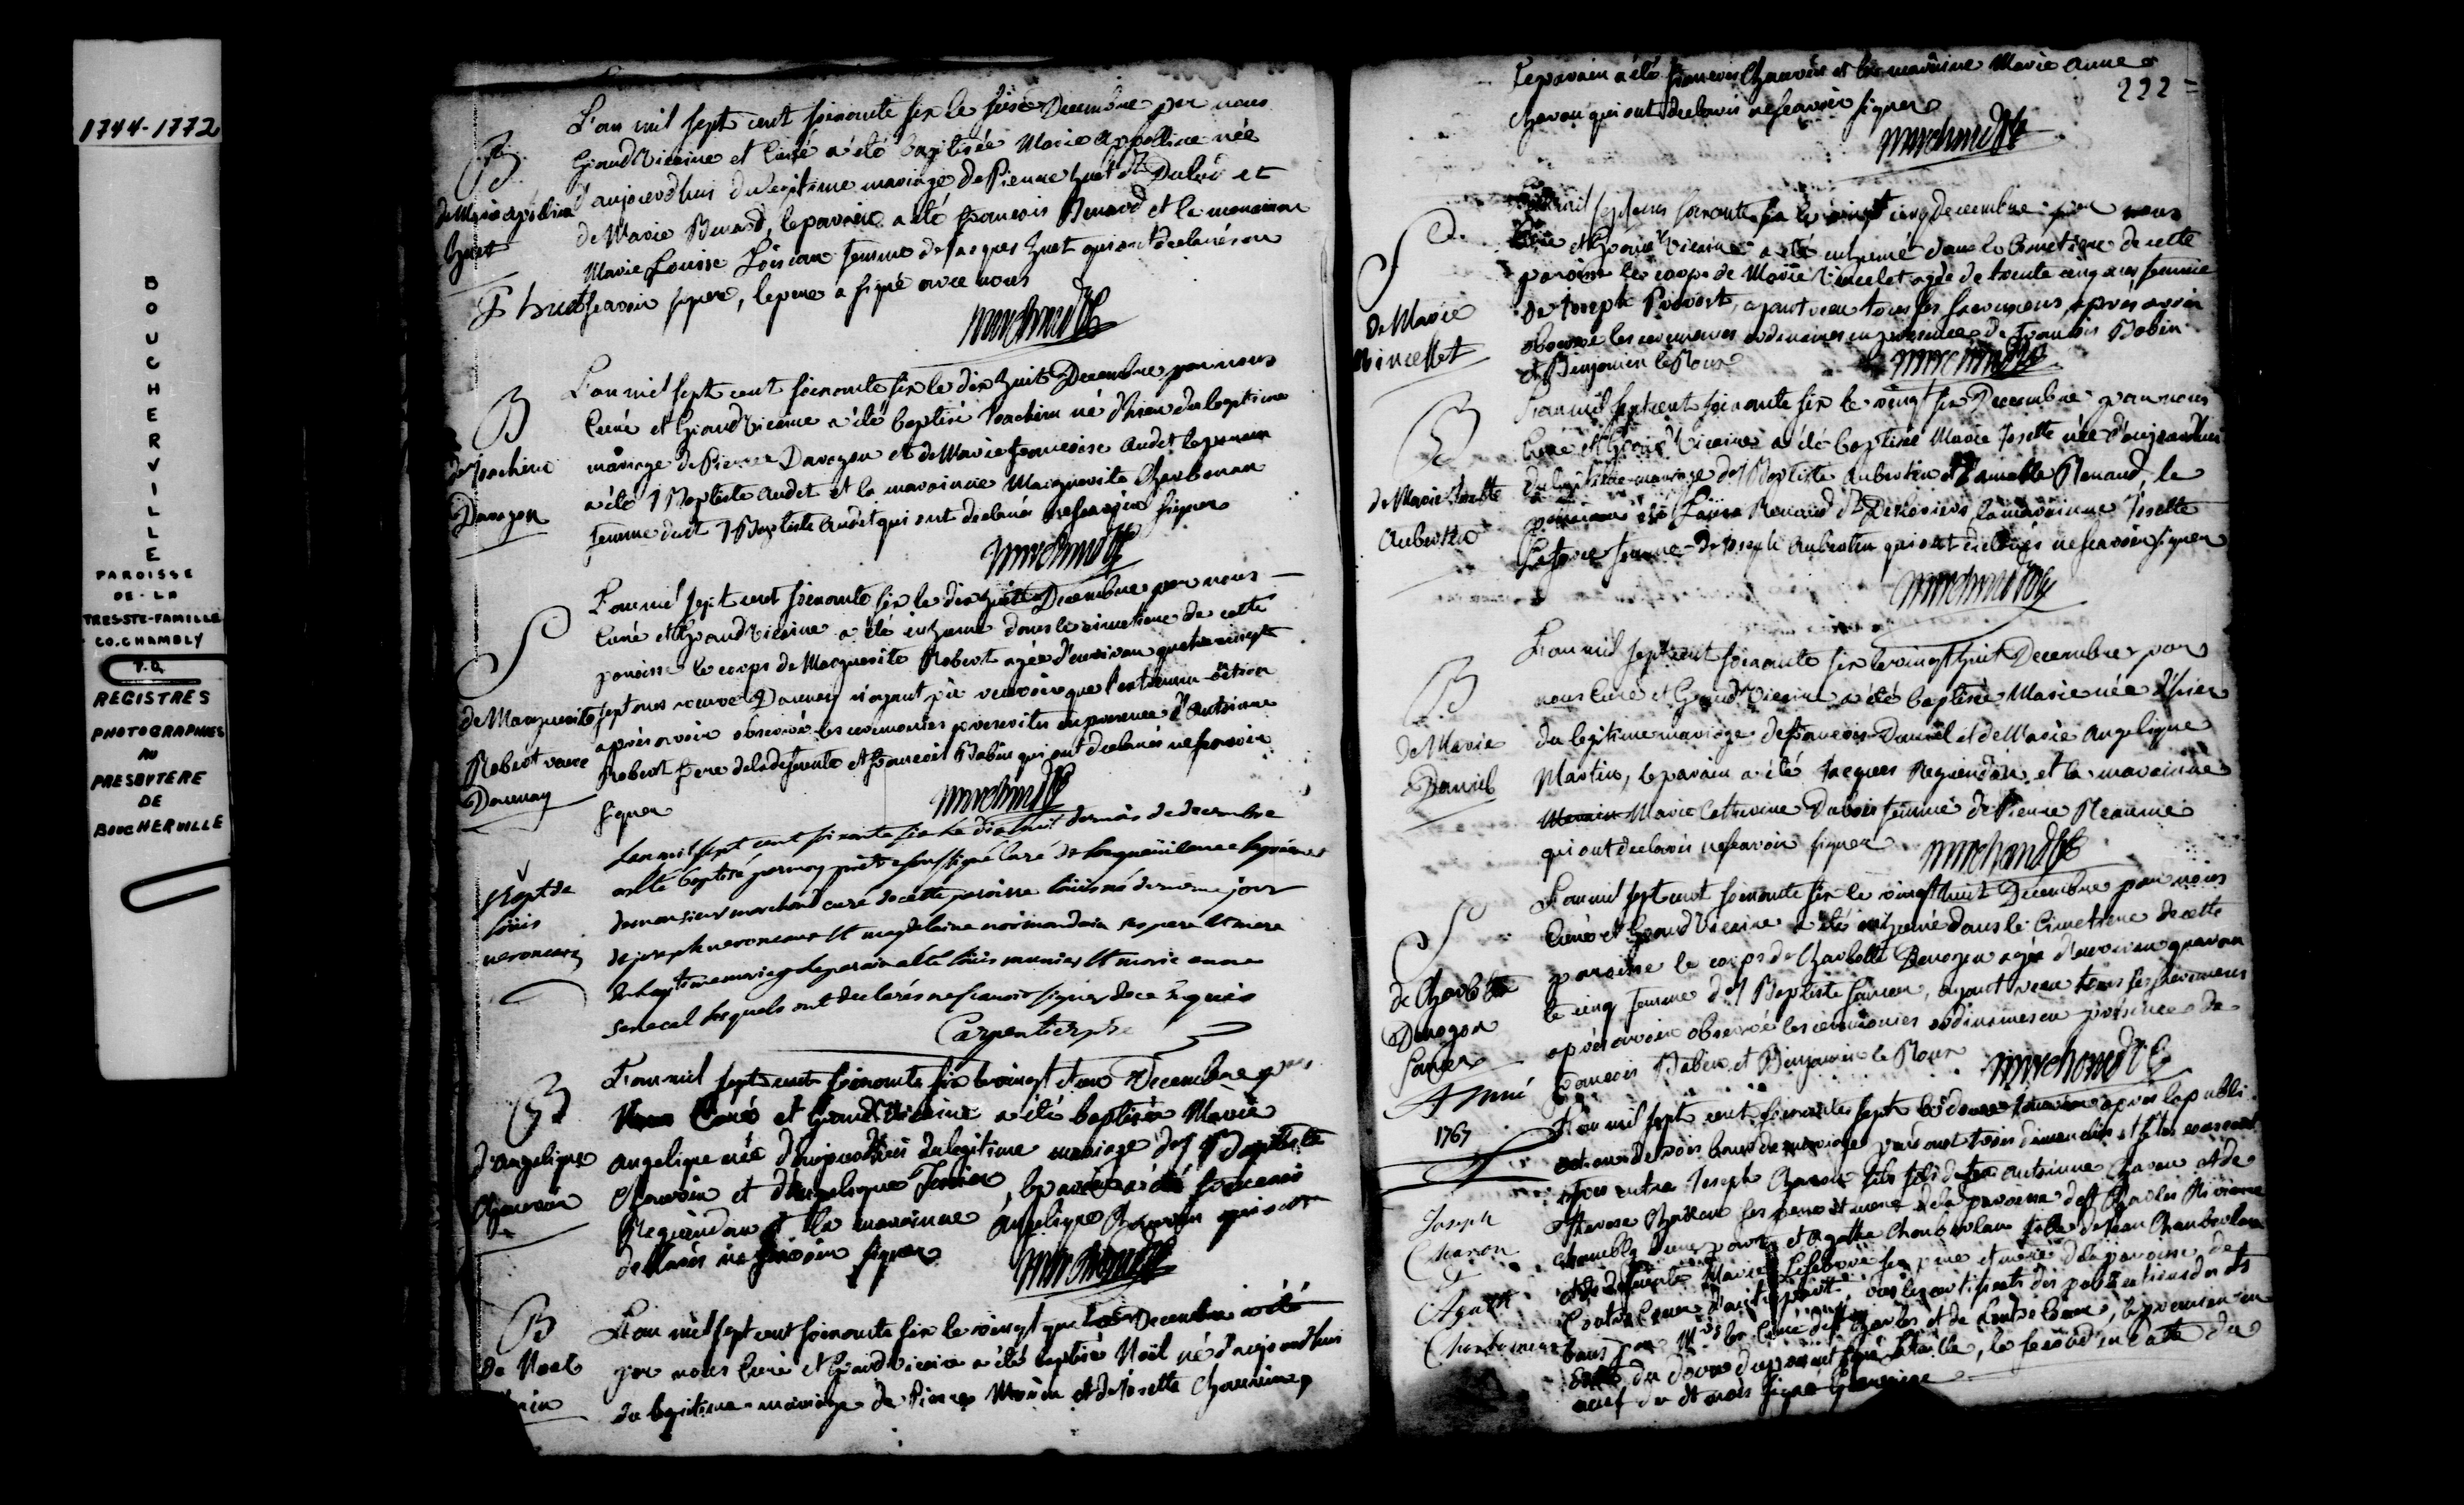 1744-1772
BOUCHERVILLE
PAROISSE
DE-LA
TRES-STE-FAMILLE
CO.CHAMBLY
P.Q.
REGISTRES
PHOTOGRAPHIES
AU
PRESBYTERE
DE
BOUCHERVILLE
L'an mil sept cent soixante six le seise Decembre par nous
B
Grand Vicaire et Curé a été baptisée Marie Appolline née
d'aujourd'hui du legitime mariage de Pierre huet dt Dului et
de Marie apolline
huet
de Marie Benard, le parain a été francois Benard et la maraine
Marie Louise Loiseau femme de Jacques huet qui ont declarés ne
P huet sçavoir signer, le pere a signé avec nous
marchand
L'an mil sept cent soixante six le dix huit Decembre par nous
B
Curé et Grand Vicaire a été baptisé Joachim né d'hier du legitime
de Joachim
Danagon
mariage de Pierre Davagon et de Marie francoise audet le parain
a été J Baptiste audet et la maraine Marguerite Charbonau
femme dudt J Baptiste audet qui ont declarés ne sçavoir signer
marchand
L'an mil sept cent soixante six le dix huit Decembre par nous
S
Curé et Grand Vicaire a été inhumé dans le cimetiere de cette
paroisse le corps de Marguerite Robert agée d'environ quatre vingt
de Marguerite
Robert veuve
Daunay
sept ans veuve Daunay n'ayant pû recevoir que l'extreme-onction
après avoir observé les ceremonies prescrites en presence d'antoine
Robert frere de la defunte et francois Babin qui ont declarés ne sçavoir
signer
marchand
L'an mil sept cent soixante six le dix huit du mois de decembre
Bapt de
Louis
veronneau
a été baptisé par moy prêtre soussigné curé de Longueüil en la presence
de monsieur marchand curé de cette paroisse louis né du meme jour
de joseph veronneau et magdelaine normandin ses pere et mere
en legitime mariage le parain a été louis meunier et marie anne
senecal lesquels ont declarés ne scavoir signer de ce requis
Carpentier ptre
L'an mil sept cent soixante six le vingt et un Decembre par
B
nous Curé et Grand Vicaire a été baptisée Marie
d'angelique
Chauvin
angelique née d'aujourd'hui du legitime mariage de J Baptiste
Chauvin et d'angelique , le parain a été francois
Reguindeau et la maraine Angelique Chauvin qui ont
declarés ne sçavoir signer
marchand
L'an mil sept cent soixante six le vingt quatre Decembre a été
B
de Noel
par nous Curé et Grand Vicaire a été baptisé Noël né d'aujourd'hui
du legitime mariage de Pierre Morin et de Josette Chauvin,
222
le parain a été francois Chauvin et la maraine Marie Anne
qui ont declarés ne sçavoir signer
marchand
L'an mil sept cens soixante six le vingt cinq decembre par nous
S
Curé et Grand Vicaire a été inhumé dans le Cimetiere de cette
paroisse le corps de Marie Vincelet agée de trente cinq ans femme
de Marie
Vincellet
de Joseph Provost, ayant reçu tous ses sacremens, après avoir
observé les ceremonies ordinaires en presence de francois Babin
et Benjamin le Roux
marchand
L'an mil sept cent soixante six le vingt six Decembre par nous
B
Curé et Grand Vicaire a été baptisée Marie Josette née d'aujourd'hui
de Marie Josette
aubertin
du legitime mariage de J Baptiste Aubertin et d'amable Renaud, le
parain a été Louis Renaud dt Deslosiers, la maraine Josette
femme de Joseph Aubertin qui ont declarés ne sçavoir signer
marchand
L'an mil sept cent soixante six le vingt huit Decembre par
B
nous Curé et Grand Vicaire a été baptisée Marie née d'hier
de Marie
Daniel
du legitime mariage de francois Daniel et de Marie Angelique
Martin, le parain a été Jacques Reguindeau et la maraine
Marie Catherine Dubois femme de Pierre Reaume
qui ont declarés ne sçavoir signer
marchand
L'an mil sept cent soixante six le vingt huit Decembre par nous
S
Curé et Grand Vicaire a été inhumé dans le Cimetiere de cette
de Charlotte
Danagon
paroisse le corps de Charlotte Danagon agée d'environ quaran
te cinq femme de J Baptiste , ayant reçu tous ses sacremens
après avoir observé les ceremonies ordinaires en presence de
francois Babin et Benjamin le Roux
marchand
1767
L'an mil sept cent soixante sept le douze après la publi
cation de trois bans de mariage pendant trois dimanches et fêtes
Joseph
Charon
&
Agathe
Charbonneau
entre Joseph Charon fils de feu antoinne Charon et de
Therese ses pere et mere de la paroisse de St Charles Riviere
Chambly d'une part; et Agathe Charbonneau fille de Jean Charbonneau
et de defunte Marie Lefebvre ses pere et mere de la paroisse de
Contrecoeur d'autre part, vû les certificats des publications des dts
bans par Mrs les Curés de St Charles et de Contre Coeur, le premier en
date du douze du present signé , le second en date du
neuf du dt mois signé